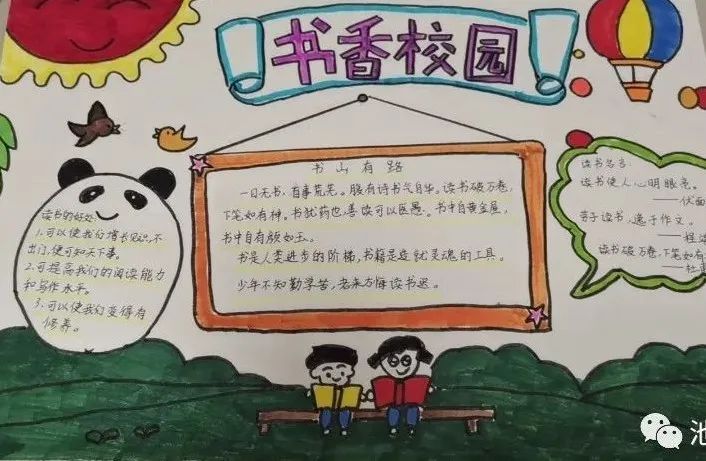 书香校园
读书的好处
1.可以使我们增长见识,不
出门,便可知天下事。
2.可提高我们的阅读能力
和写作水平。
3.可以使我们变得有
修养。
书山有路
一日无书,百事荒芜。腹有诗书气自华。读书破万卷,
下笔如有神。书犹药也,善读可以医愚。书中自黄金屋,
书中自有颜如玉。
书是人类进步的阶梯,书籍是造就灵魂的工具。
少年不知勤学苦,老来方悔读书迟。
读书名言:
读书使人心明眼亮。
——伏
苦于读书,逸于作文。
——程
读书破万卷,下笔如有
——杜
池